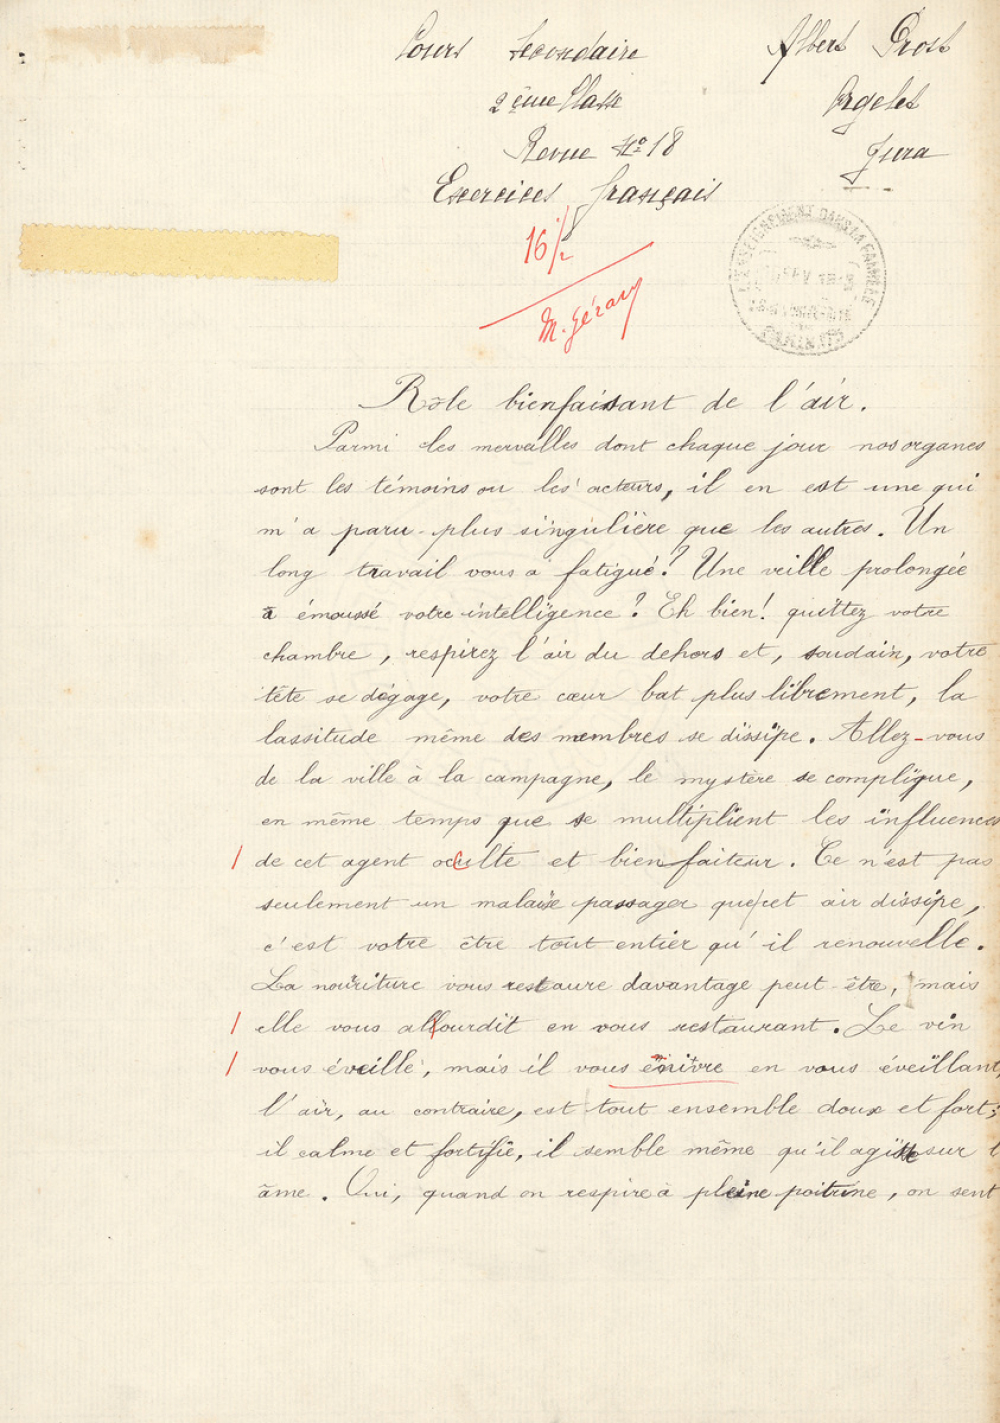 Cours Secondaire
Albert Prost
2ème Classe
Orgelet
Revue No 18
Jura
Exercices français
16 1/2
M. Gérary
L'ENSEIGNEMENT DANS LA FAMILLE
Rôle bienfaisant de l'air.
Parmi les merveilles dont chaque jour nos organes
sont les témoins ou les acteurs, il en est une qui
m'a paru plus singulière que les autres. Un
long travail vous a fatigué? Une veille prolongée
a émoussé votre intelligence? Eh bien! quittez votre
chambre, respirez l'air du dehors et, soudain, votre
tête se dégage, votre cœur bat plus librement, la
lassitude même des membres se dissipe. Allez-vous
de la ville à la campagne, le mystère se complique,
en même temps que se multiplient les influences
de cet agent oculte et bienfaiteur. Ce n'est pas
seulement un malaise passager que cet air dissipe,
c'est votre être tout entier qu'il renouvelle.
La nouriture vous restaure davantage peut-être, mais
elle vous allourdit en vous restaurant. Le vin
vous éveille, mais il vous énivre en vous éveillant,
l'air, au contraire, est tout ensemble doux et fort;
il calme et fortifie, il semble même qu'il agisse sur l
âme. Oui, quand on respire à pleine poitrine, on sent